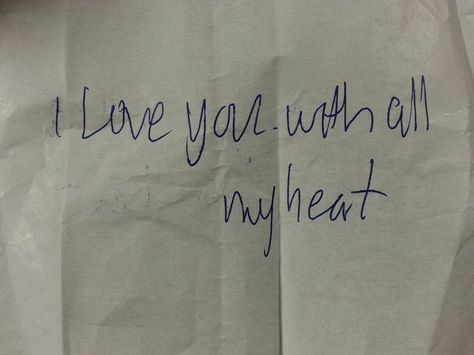 I Love you with all
my heart